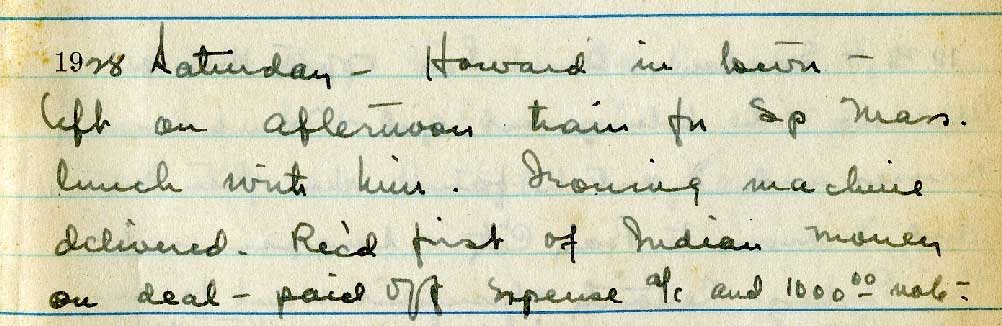 1928 Saturday - Howard in town -
left on afternoon train for Sp Mass.
lunch with him. Ironing machine
delivered. Rec'd first of Indian money
on deal - paid off expense a/c and 1000.00 note -